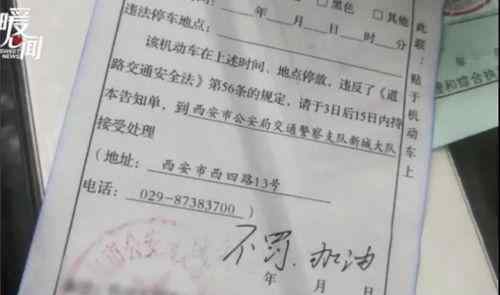 暖心间
SWEET NEWS
年 月 □黑色 □其他
违法停车地点：
年 月 日 时 分
该机动车在上述时间、地点停放，违反了《道
路交通安全法》第56条的规定，请于3日后15日内持
本告知单，到西安市公安局交通警察支队新城大队
接受处理
（地址：西安市西四路13号
电话：029-87383700）
不罚.加油
年 月 日
此联：贴于机动车上